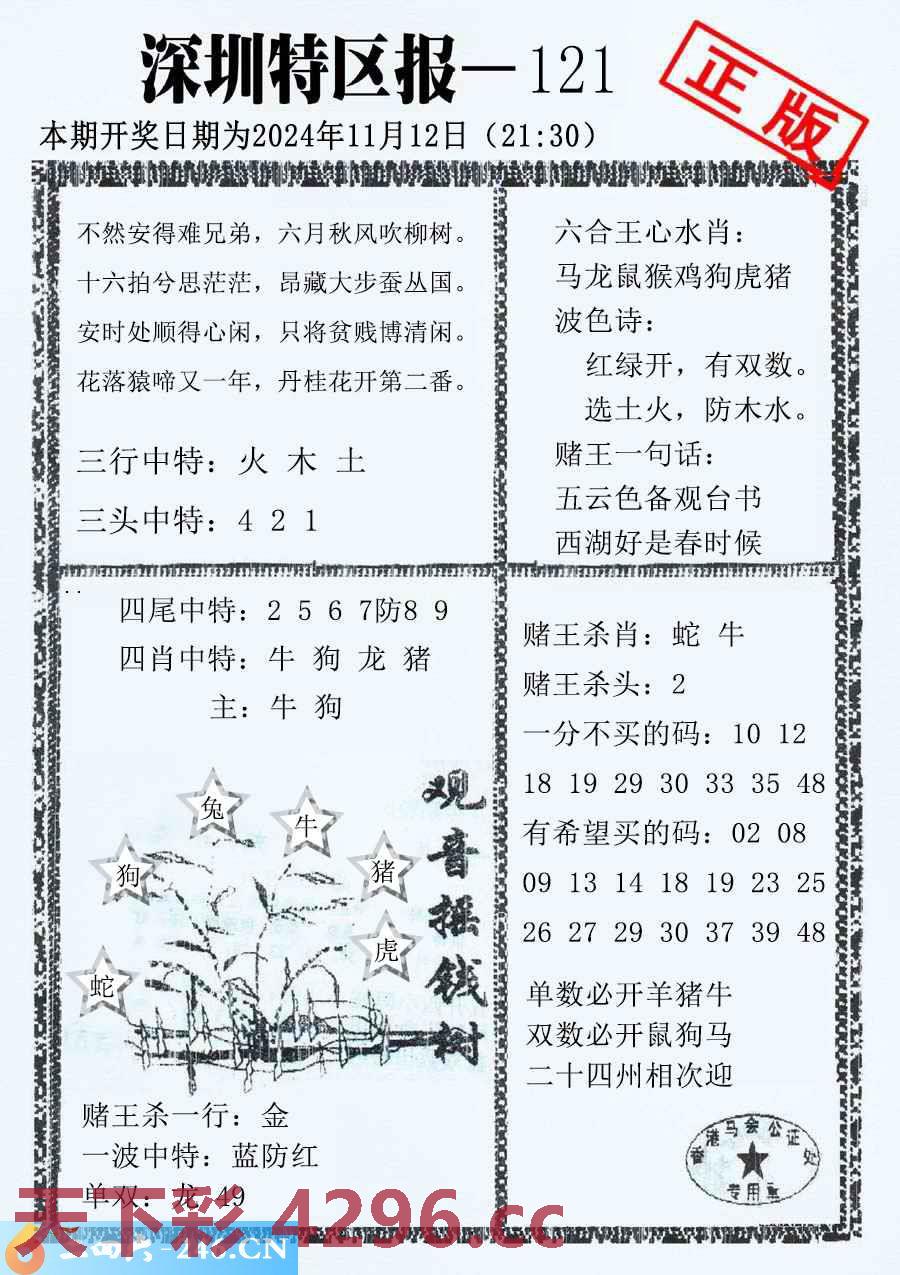 深圳特区报—121
正版
本期开奖日期为2024年11月12日（21:30）
不然安得难兄弟，六月秋风吹柳树。
十六拍兮思茫茫，昂藏大步蚕丛国。
安时处顺得心闲，只将贫贱博清闲。
花落猿啼又一年，丹桂花开第二番。
三行中特：火 木 土
三头中特：4 2 1
六合王心水肖：
马龙鼠猴鸡狗虎猪
波色诗：
红绿开，有双数。
选土火，防木水。
赌王一句话：
五云色备观台书
西湖好是春时候
四尾中特：2 5 6 7防8 9
四肖中特：牛 狗 龙 猪
主：牛 狗
兔
牛
狗
猪
虎
蛇
观音摇钱树
赌王杀一行：金
一波中特：蓝防红
单双：龙 49
赌王杀肖：蛇 牛
赌王杀头：2
一分不买的码：10 12
18 19 29 30 33 35 48
有希望买的码：02 08
09 13 14 18 19 23 25
26 27 29 30 37 39 48
单数必开羊猪牛
双数必开鼠狗马
二十四州相次迎
香港马会公证处
专用章
天下彩 4296.cc
-246.CN